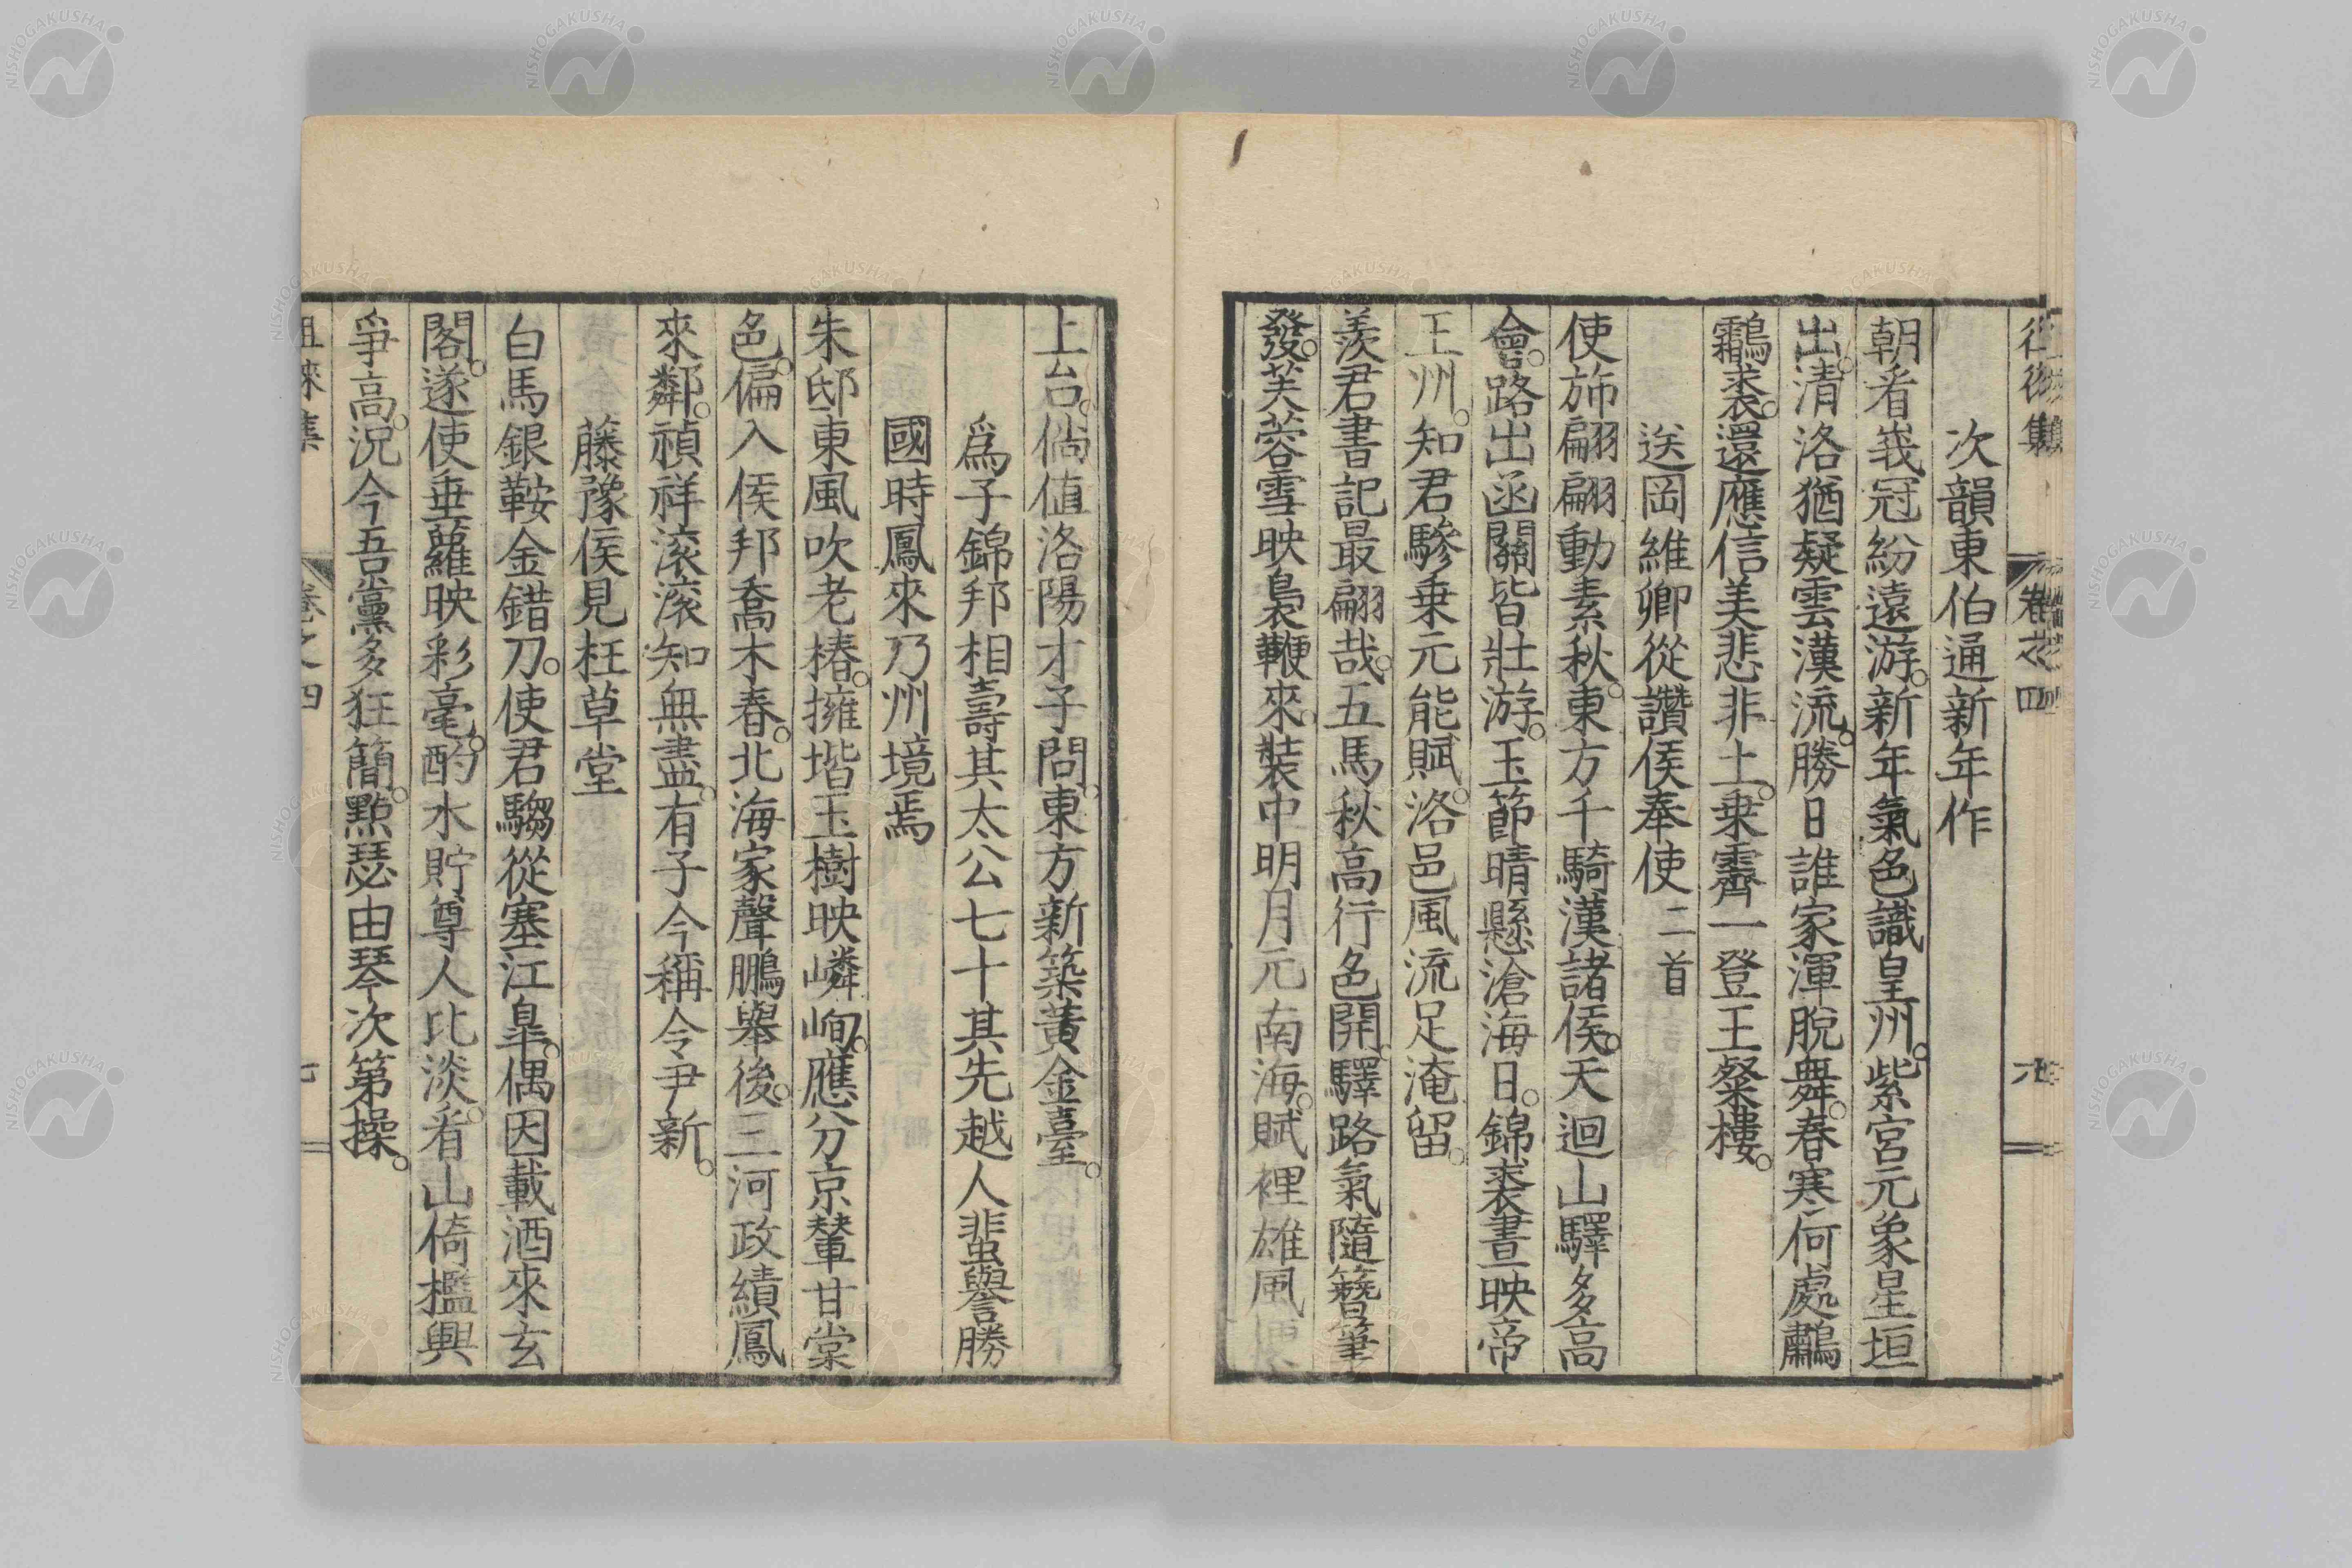 次韻東伯通新年作
朝看峩冠紛遠游。新年氣色識皇州。紫宮元象星垣
出。清洛猶疑雲漢流。勝日誰家渾脫舞。春寒何處鷫
鸘裘。還應信美悲非土。乗霽一登王粲樓。
送岡維卿從讚侯奉使二首
使旆翩翩動素秋。東方千騎漢諸侯。天迴山驛多高
會。路出函關皆壯游。玉節晴懸滄海日。錦裘晝映帝
王州。知君驂乗元能賦。洛邑風流足淹留。
羨君書記最翩哉。五馬秋高行色開。驛路氣隨簪筆
發。芙蓉雪映裊鞭來。裝中明月元南海。賦裡雄風更
上台。倘值洛陽才子問。東方新築黃金臺。
爲子錦邦相壽其太公七十其先越人蜚譽勝
國時鳳來乃州境焉
朱邸東風吹老椿。擁堦玉樹映嶙峋。應分京輦甘棠
色。偏入侯邦喬木春。北海家聲鵬舉後。三河政績鳳
來鄰。禎祥滚滚知無盡。有子今稱令尹新。
藤豫侯見枉草堂
白馬銀鞍金錯刀。使君騶從塞江皐。偶因載酒來玄
閣。遂使垂蘿映彩毫。酌水貯尊人比淡。看山倚檻興
爭高。況今吾黨多狂簡。㸃瑟由琴次第操。
徂徠集
卷之四
七
卷之四
NISHOGAKUSHA
NISHOGAKUSHA
NISHOGAKUSHA
NISHOGAKUSHA
NISHOGAKUSHA
NISHOGAKUSHA
NISHOGAKUSHA
NISHOGAKUSHA
NISHOGAKUSHA